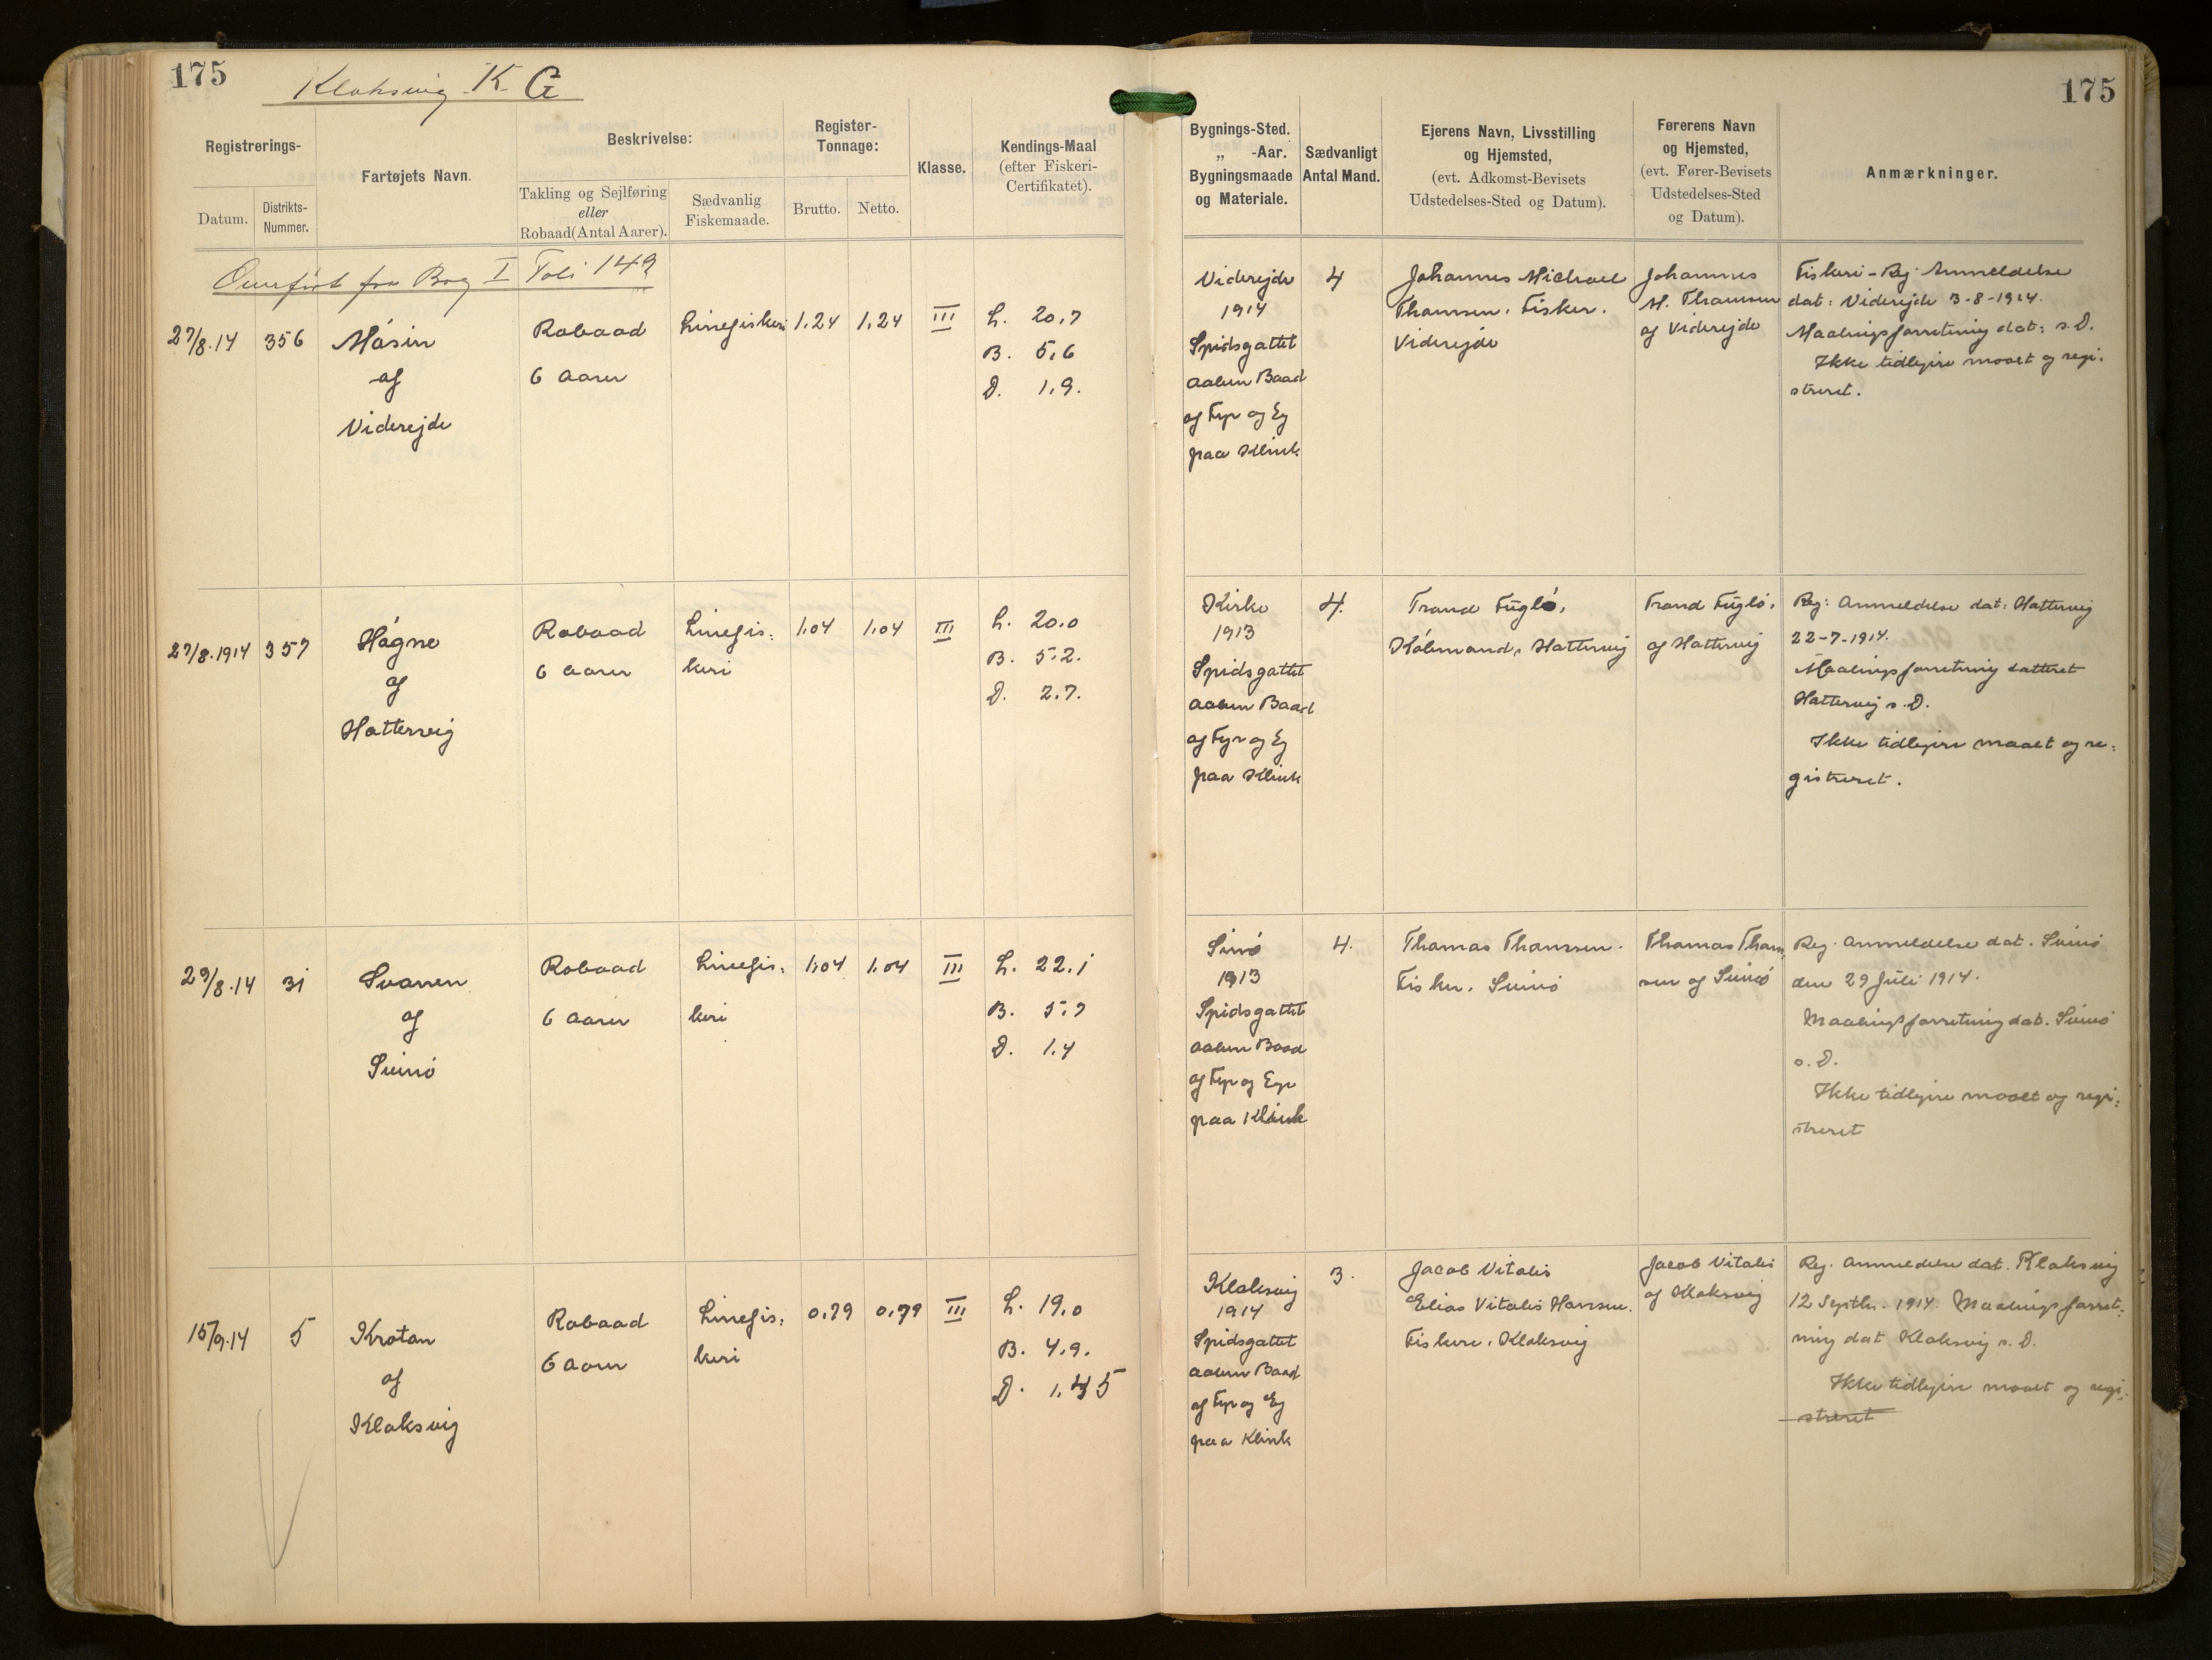 175
Klaksvig K G
Registrerings-
Datum.
Distrikts-
Nummer.
Fartøjets Navn.
Beskrivelse:
Takling og Sejlføring
eller
Robaad (Antal Aarer).
Sædvanlig
Fiskemaade.
Register-
Tonnage:
Brutto.
Netto.
Klasse.
Kendings-Maal
(efter Fiskeri-
Certifikatet).
Bygnings-Sted.
„ -Aar.
Bygningsmaade
og Materiale.
Sædvanligt
Antal Mand.
Ejerens Navn, Livsstilling
og Hjemsted,
(evt. Adkomst-Bevisets
Udstedelses-Sted og Datum).
Førerens Navn
og Hjemsted,
(evt. Fører-Bevisets
Udstedelses-Sted
og Datum).
Anmærkninger.
175
Overført fra Bog I Foli 149
27/8.14
356
Másin
af
Viderejde
Robaad
6 Aarer
Linefiskeri
1.24
1.24
III
L. 20.7
B. 5.6
D. 1.9.
Viderejde
1914
Spidsgattet
aaben Baad
af Fyr og Eg
paa Klink
4
Johannes Michael
Thomsen. Fisker.
Viderejde
Johannes
M. Thomsen
af Viderejde
Fiskeri-Reg. Anmeldelse
dat: Viderejde 3-8-1914.
Maalingsforretning dat: s.D.
Ikke tidligere maalt og regi:
streret.
27/8.1914
357
Høgne
af
Hattervig
Robaad
6 Aarer
Linefis:
keri
1.04
1.04
III
L. 20.0
B. 5.2.
D. 2.7.
Kirke
1913
Spidsgattet
aaben Baad
af Fyr og Eg
paa Klink
4.
Trond Fuglø,
Købmand, Hattervig
Trond Fuglø,
af Hattervig
Reg: Anmeldelse dat: Hattervig
22-7-1914.
Maalingsforretning datteret
Hattervig s.D.
Ikke tidligere maalt og re:
gistreret.
29/8.14
31
Svanen
af
Svinø
Robaad
6 Aarer
Linefis:
keri
1.04
1.04
III
L. 22.1
B. 5.7
D. 1.4
Sinø
1913
Spidsgattet
aaben Baad
af Fyr og Egr
paa Klink
4.
Thomas Thomsen.
Fisker. Svinø
Thomas Thom
sen af Svinø
Reg. Anmeldelse dat. Svinø
den 29 Juli 1914.
Maalingsforretning dat. Svinø
s.D.
Ikke tidligere maalt og regi:
streret
15/9.14
5
Krotan
af
Klaksvig
Robaad
6 Aarer
Linefis:
keri
0.79
0.79
III
L. 19.0
B. 4.9.
D. 1.45
Klaksvig
1914
Spidsgattet
aaben Baad
af Fyr og Eg
paa Klink
3.
Jacob Vitalis
Elias Vitalis Hansen.
Fiskere. Klaksvig
Jacob Vitalis
af Klaksvig
Reg. Anmeldelse dat. Klaksvig
12 Septbr. 1914. Maalingsforret:
ning dat Klaksvig s.D.
Ikke tidligere maalt og regi:
streret